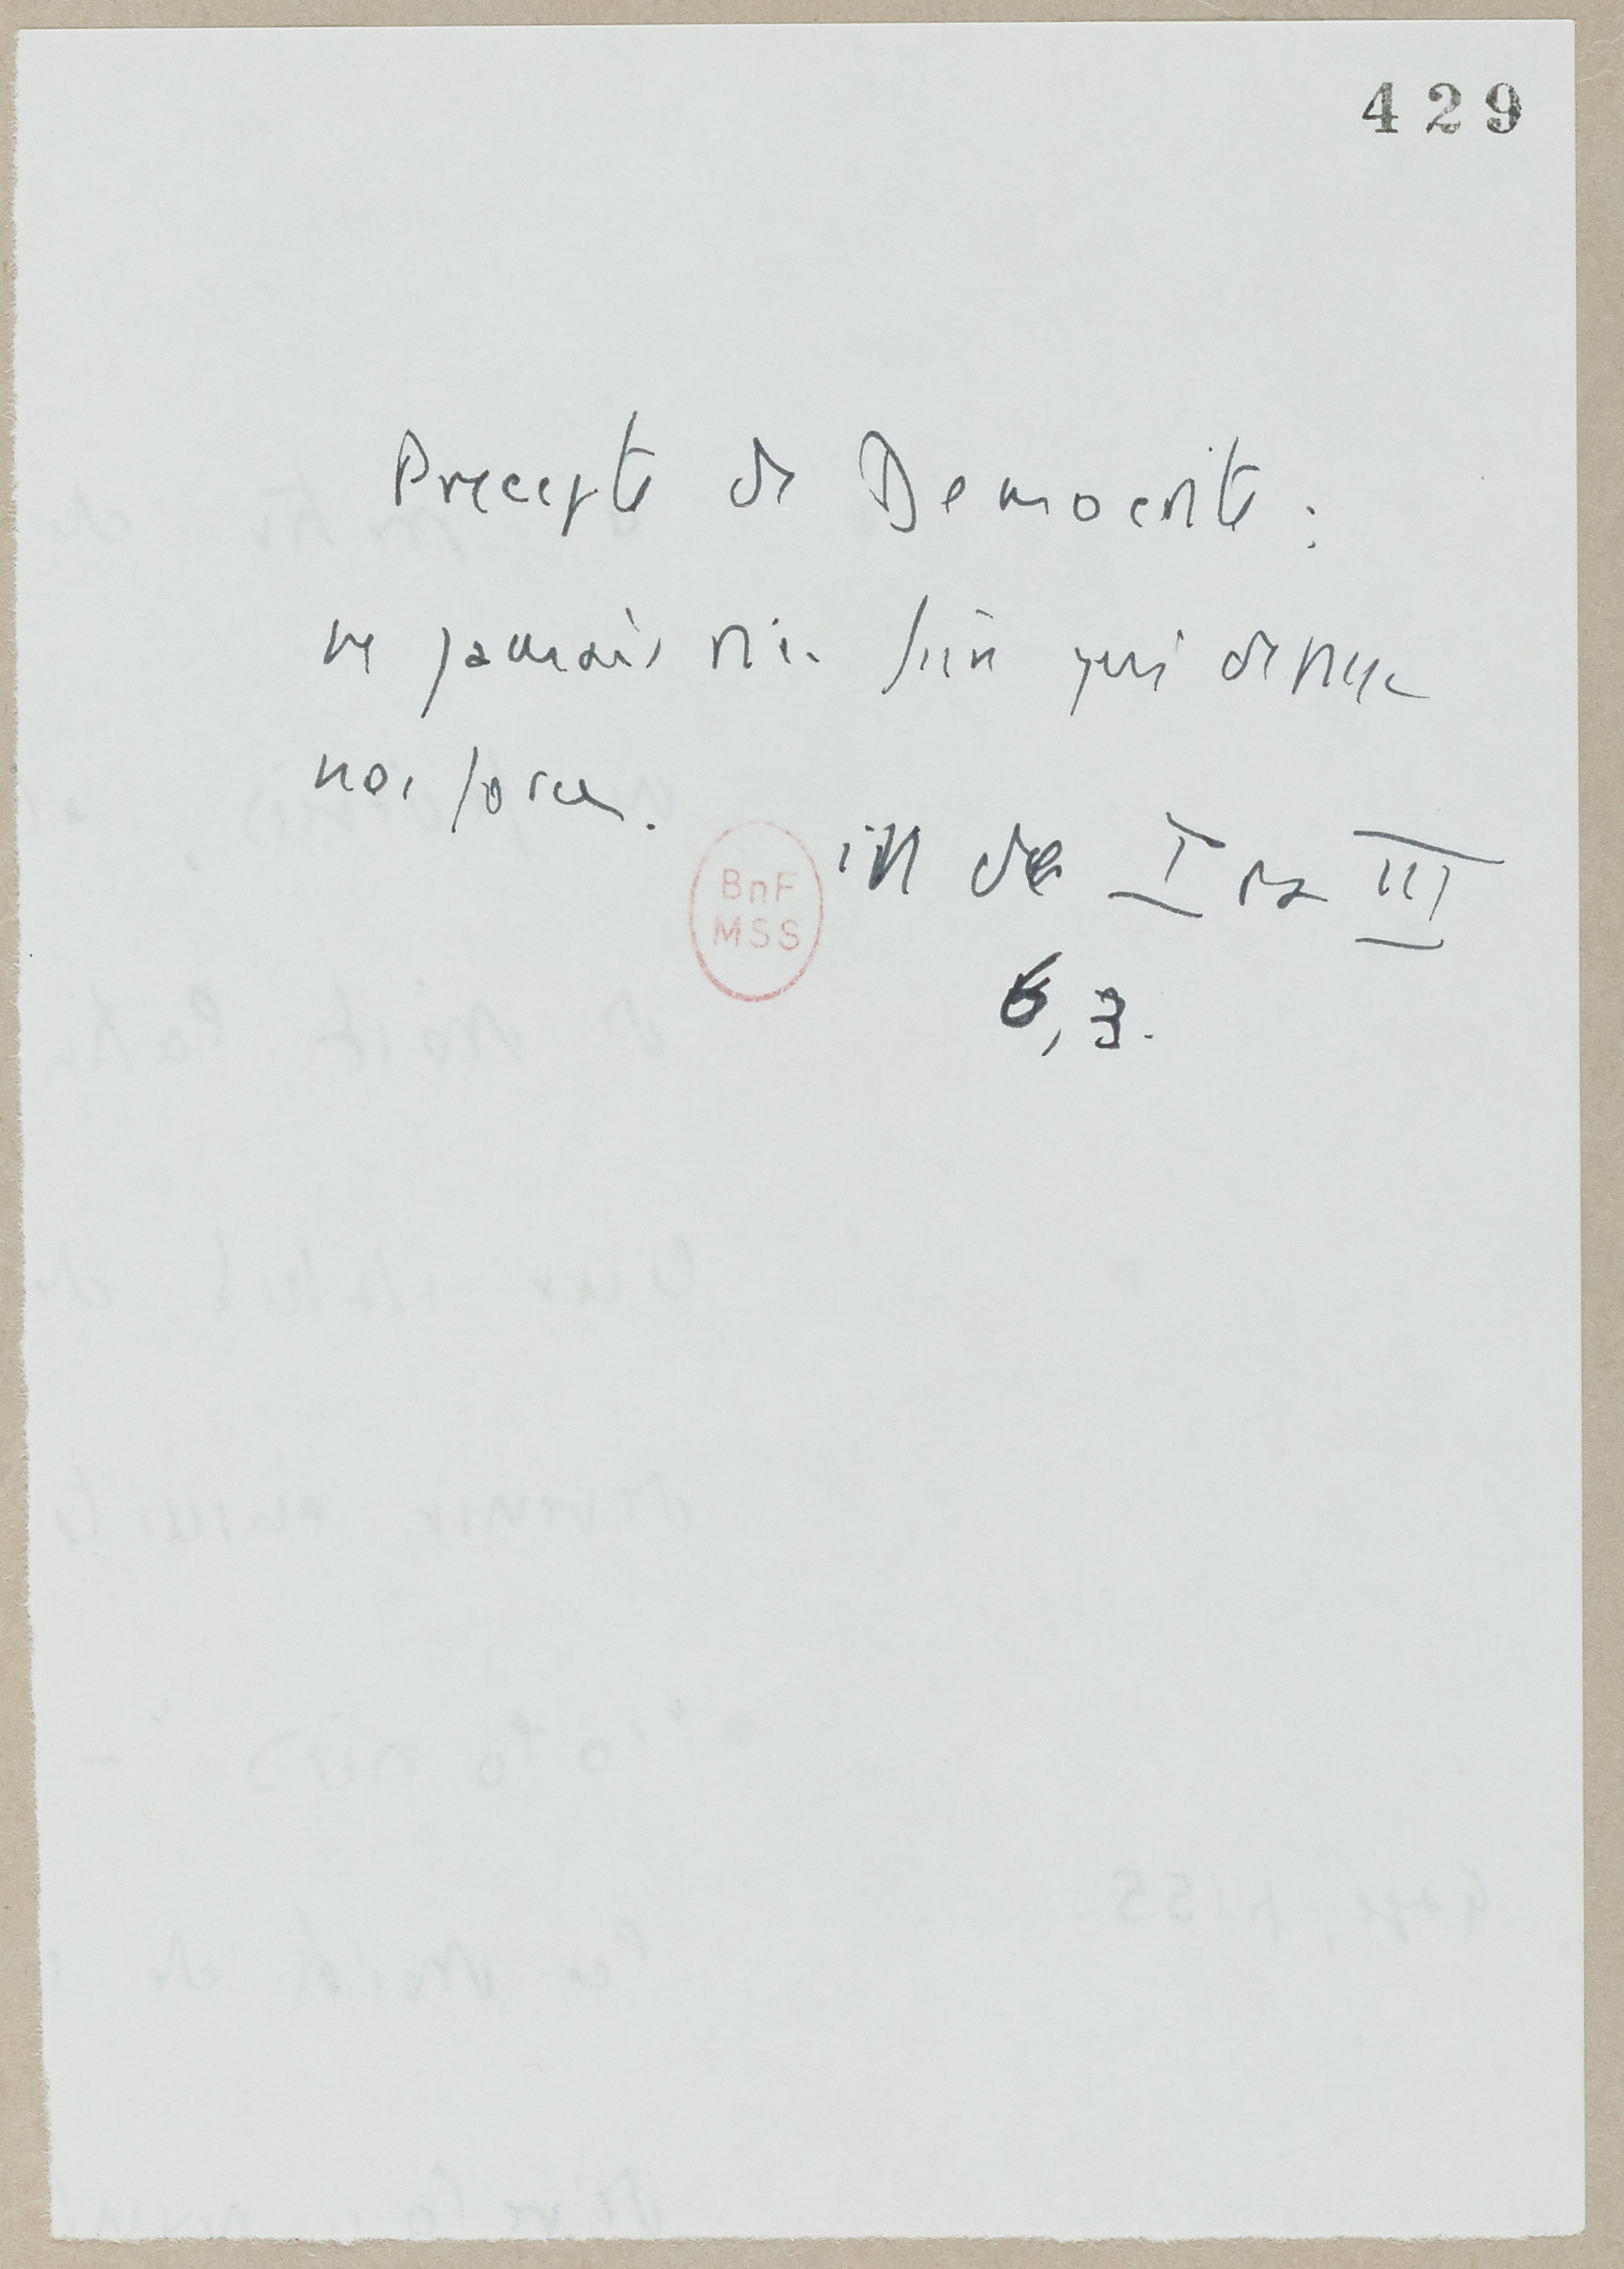 429
Precepte de Democrite :
ne jamais rien faire qui depasse
nos forces.
BnF
MSS
de I III
6, 3.